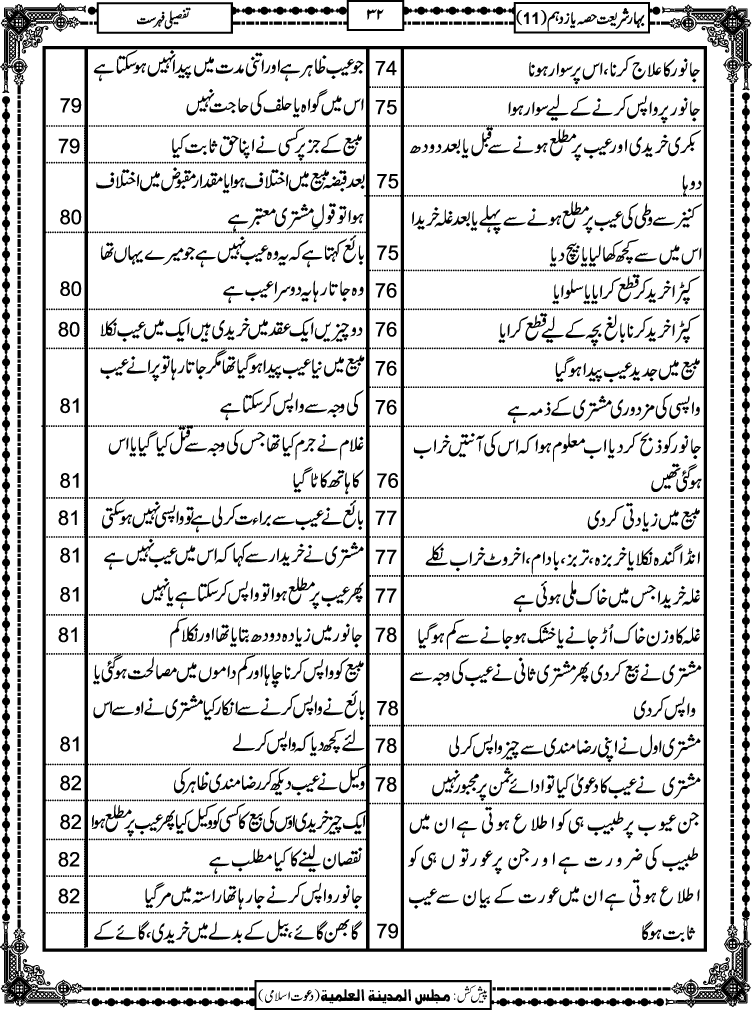 بہار شریعت حصہ یازدہم (11)
۳۲
تفصیلی فہرست
جانور کا علاج کرنا، اس پر سوار ہونا 74
جانور پر واپس کرنے کے لیے سوار ہوا 75
بکری خریدی اور عیب پر مطلع ہونے سے قبل یا بعد دودھ
دوہا 75
کنیز سے وطی کی عیب پر مطلع ہونے سے پہلے یا بعد غلہ خریدا
اس میں سے کچھ کھالیا یا بیچ دیا 75
کپڑا خرید کر قطع کرایا یا سلوایا 76
کپڑا خرید کر نا بالغ بچہ کے لیے قطع کرایا 76
مبیع میں جدید عیب پیدا ہوگیا 76
واپسی کی مزدوری مشتری کے ذمہ ہے 76
جانور کو ذبح کر دیا اب معلوم ہوا کہ اس کی آنتیں خراب
ہوگئی تھیں 76
مبیع میں زیادتی کردی 77
انڈا گندہ نکلا یا خربزہ، تربز، بادام، اخروٹ خراب نکلے 77
غلہ خریدا جس میں خاک ملی ہوئی ہے 77
غلہ کا وزن خاک اُڑ جانے یا خشک ہو جانے سے کم ہوگیا 78
مشتری نے بیع کردی پھر مشتری ثانی نے عیب کی وجہ سے
واپس کردی 78
مشتری اول نے اپنی رضا مندی سے چیز واپس کر لی 78
مشتری نے عیب کا دعویٰ کیا تو ادائے ثمن پر مجبور نہیں 78
جن عیوب پر طبیب ہی کو اطلاع ہوتی ہے ان میں
طبیب کی ضرورت ہے اور جن پر عورتوں ہی کو
اطلاع ہوتی ہے ان میں عورت کے بیان سے عیب
ثابت ہوگا 79
جو عیب ظاہر ہے اور اتنی مدت میں پیدا نہیں ہوسکتا ہے
اس میں گواہ یا حلف کی حاجت نہیں 79
مبیع کے جز پر کسی نے اپنا حق ثابت کیا 79
بعد قبضہ مبیع میں اختلاف ہوا یا مقدار مقبوض میں اختلاف
ہوا تو قولِ مشتری معتبر ہے 80
بائع کہتا ہے کہ یہ وہ عیب نہیں ہے جو میرے یہاں تھا
وہ جاتا رہا یہ دوسرا عیب ہے 80
دو چیزیں ایک عقد میں خریدی ہیں ایک میں عیب نکلا 80
مبیع میں نیا عیب پیدا ہوگیا تھا مگر جاتا رہا تو پرانے عیب
کی وجہ سے واپس کر سکتا ہے 81
غلام نے جرم کیا تھا جس کی وجہ سے قتل کیا گیا یا اس
کا ہاتھ کاٹا گیا 81
بائع نے عیب سے براءت کر لی ہے تو واپسی نہیں ہوسکتی 81
مشتری نے خریدار سے کہا کہ اس میں عیب نہیں ہے 81
پھر عیب پر مطلع ہوا تو واپس کر سکتا ہے یا نہیں 81
جانور میں زیادہ دودھ بتایا تھا اور نکلا کم 81
مبیع کو واپس کرنا چاہا اور کم داموں میں مصالحت ہوگئی یا
بائع نے واپس کرنے سے انکار کیا مشتری نے اوسے اس
لئے کچھ دیا کہ واپس کرلے 81
وکیل نے عیب دیکھ کر رضا مندی ظاہر کی 82
ایک چیز خریدی اوس کی بیع کا کسی کو وکیل کیا پھر عیب پر مطلع ہوا 82
نقصان لینے کا کیا مطلب ہے 82
جانور واپس کرنے جارہا تھا راستہ میں مر گیا 82
گابھن گائے، بیل کے بدلے میں خریدی، گائے کے
پیش کش: مجلس المدینة العلمیة (دعوت اسلامی)